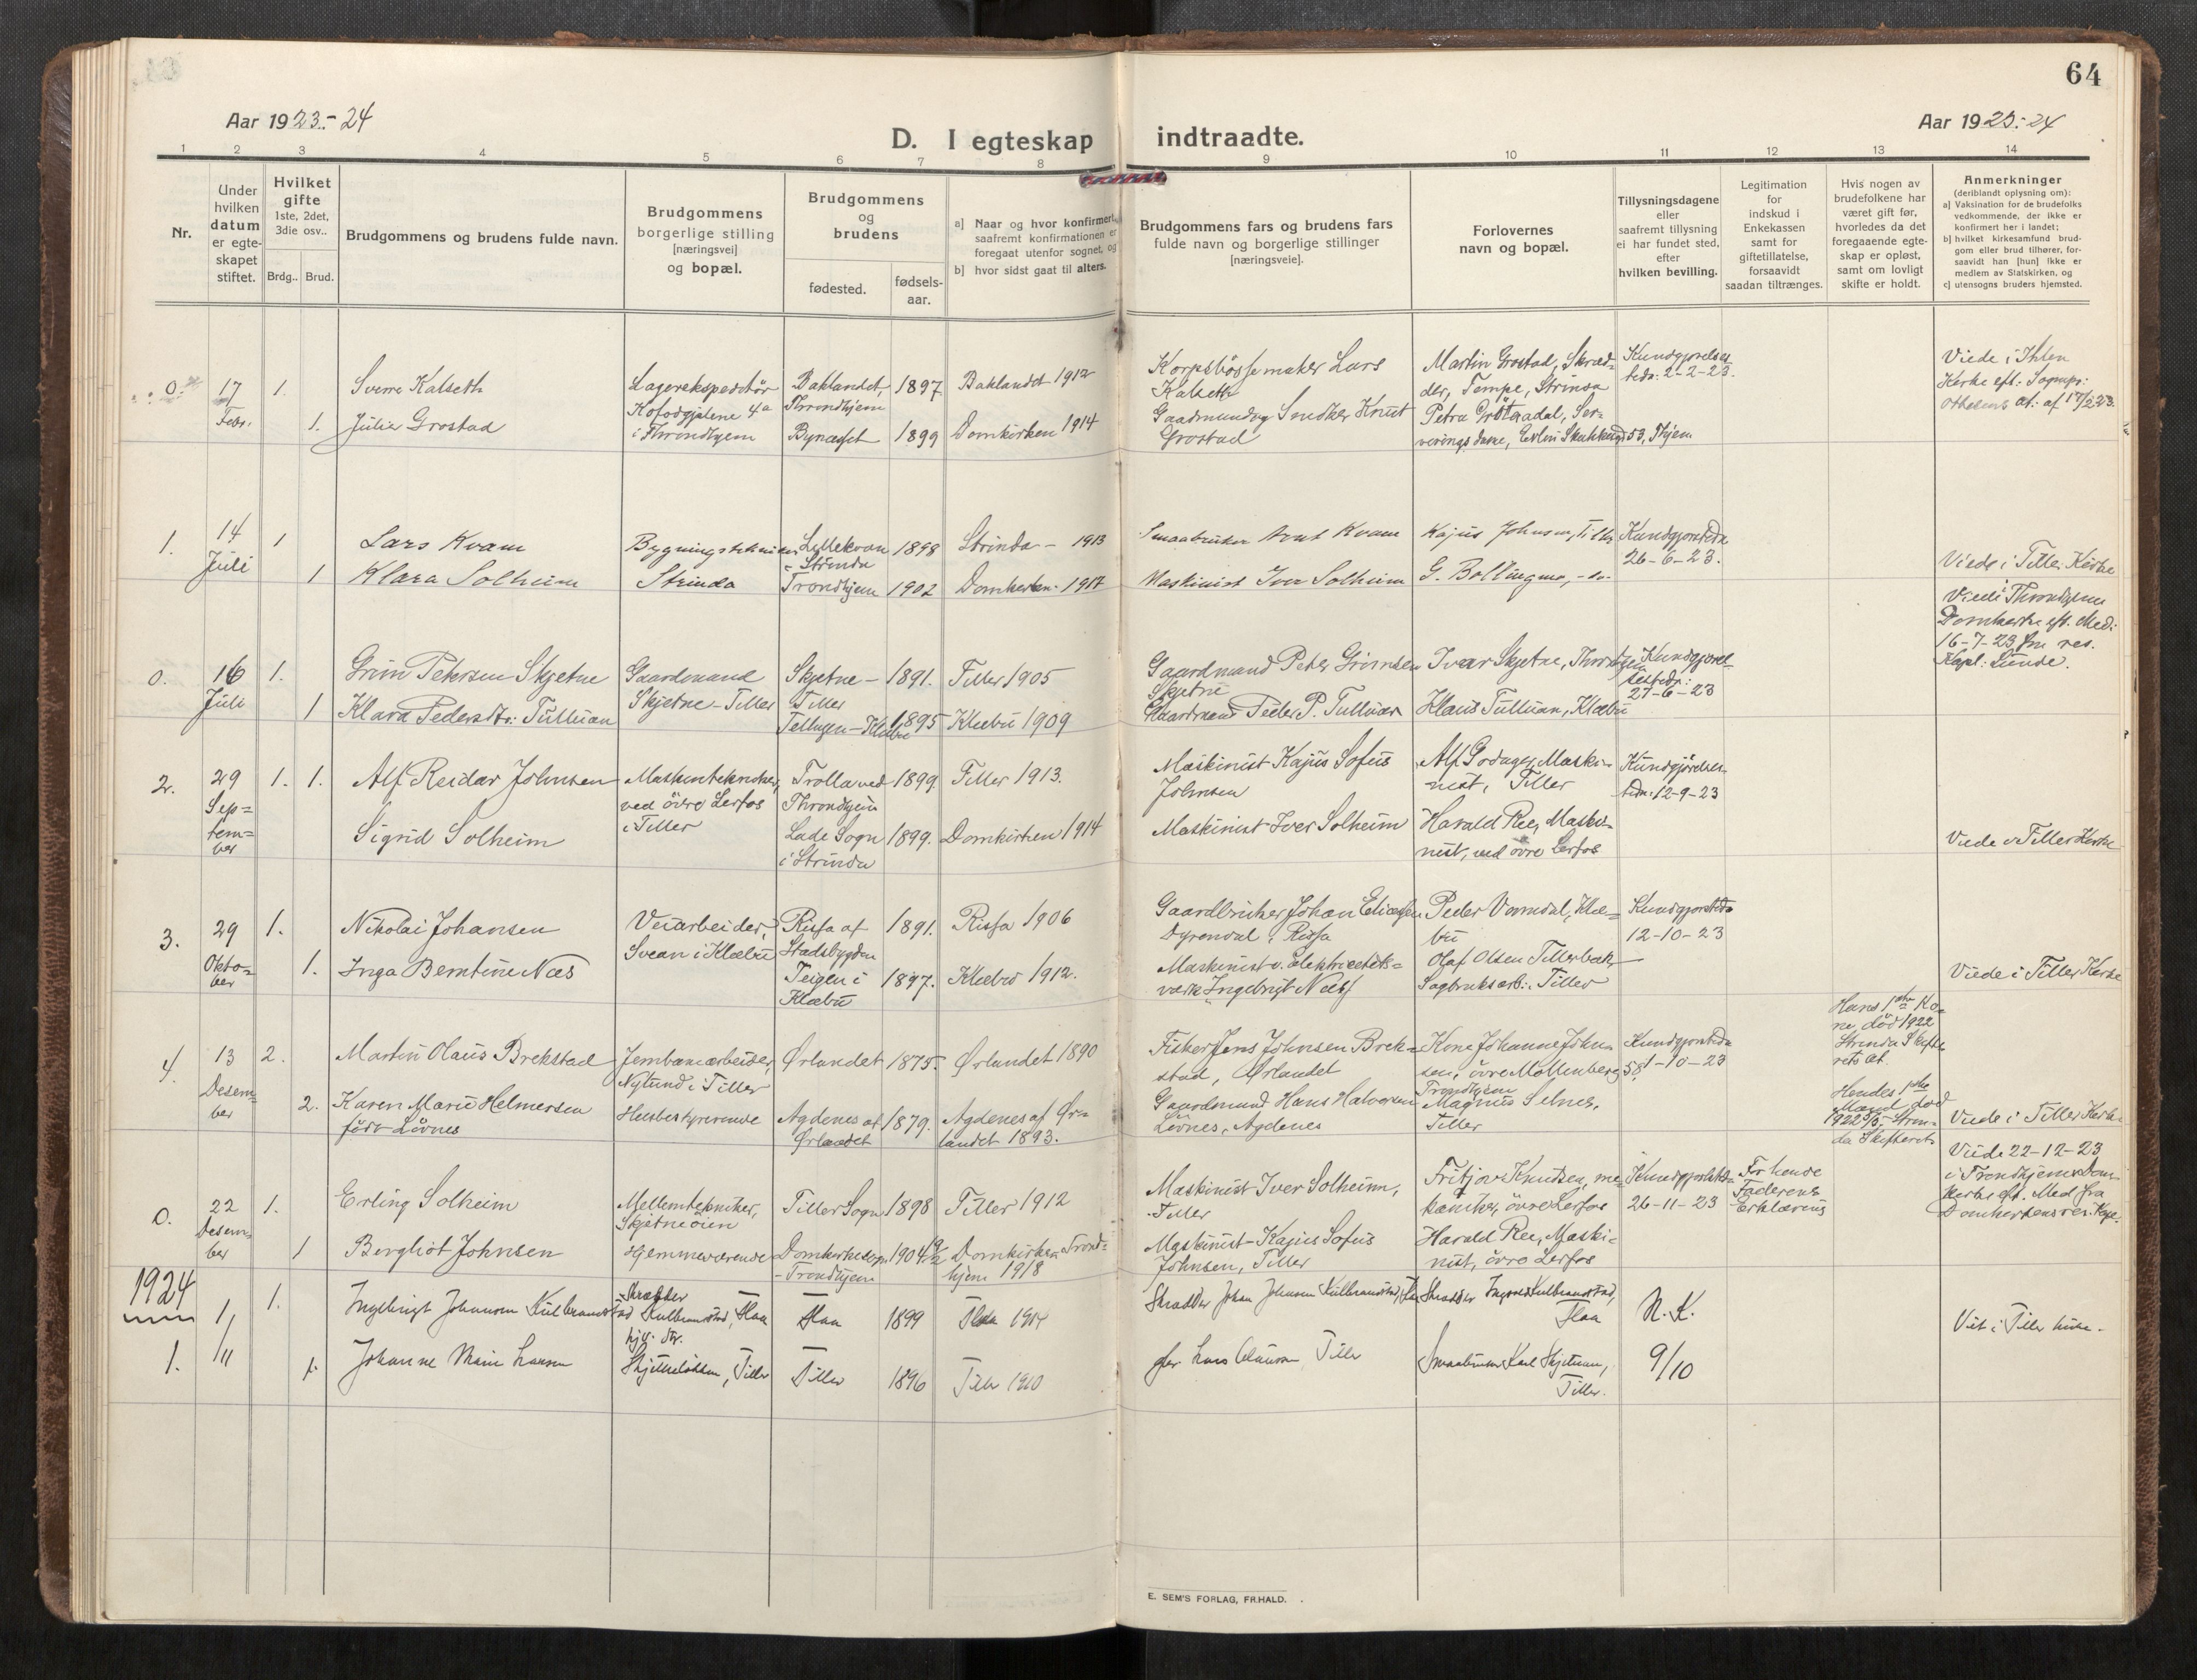 64
Aar 1923.-24
D. I egteskap indtraadte.
Aar 1923.-24
1 2 3 4 5 6 7 8 9 10 11 12 13 14
Nr.
Under
hvilken
datum
er egte-
skapet
stiftet.
Hvilket
gifte
1ste, 2det,
3die osv..
Brdg.. Brud.
Brudgommens og brudens fulde navn.
Brudgommens
borgerlige stilling
[næringsvei]
og bopæl.
Brudgommens
og
brudens
fødested.
fødsels-
aar.
a] Naar og hvor konfirmert,
saafremt konfirmationen er
foregaat utenfor sognet, og
b] hvor sidst gaat til alters.
Brudgommens fars og brudens fars
fulde navn og borgerlige stillinger
[næringsveie].
Forlovernes
navn og bopæl.
Tillysningsdagene
eller
saafremt tillysning
ei har fundet sted,
efter
hvilken bevilling.
Legitimation
for
indskud i
Enkekassen
samt for
giftetillatelse,
forsaavidt
saadan tiltrænges.
Hvis nogen av
brudefolkene har
været gift før,
hvorledes da det
foregaaende egte-
skap er opløst,
samt om lovligt
skifte er holdt.
Anmerkninger
(deriblandt oplysning om):
a] Vaksination for de brudefolks
vedkommende, der ikke er
konfirmert her i landet;
b] hvilket kirkesamfund brud-
gom eller brud tilhører, for-
saavidt han [hun] ikke er
medlem av Statskirken, og
c] utensogns bruders hjemsted.
0. 17 Febr. 1.
Sverre Kalseth
Lagerekspeditør
i Throndhjem
Baklandet, Throndhjem 1897 Baklandet 1912
Korpsbøssemaker Lars
Kalseth
Martin Grostad, Skræd-
der, Tempe, Strinda
Kundgjorelses-
teds: 2-2-23.
Viede i Ihlen
Kirke eft.
1. Julia Grostad
Bynæset 1899 Domkirken 1914
Gaardmand og Snedker Knut
Grostad
Petra
53, Thjem
1. 14 Juli 1
Lars Kvam
Bygningstekniker
Strinda
Strinda 1898 Strinda - 1913
Smaabruker Arnt Kvam
Kajus Johnsen, Tiller
26-6-23.
1 Klara Solheim
Trondhjem 1902 Domkirken - 1917
Maskinist Iver Solheim
G. Bollingmo, - do -
Viede i Tiller Kirke
0. 16 Juli 1.
Grim Petersen Skjetne
Gaardmand
Skjetne - Tiller
Skjetne - Tiller 1891. Tiller 1905
Gaardmand Peter Grimsen
Skjetne
Ivar Skjetne,
27-6-23
Viede i Throndhjems
Domkirke eft. Med:
16-7-23 fra res.
Kapl: Lunde.
1 Klara Pedersdtr: Tulluan
Klæbu 1895 Klæbu 1909
Gaardmand Peder P. Tulluan
Klaus Tulluan, Klæbu
2. 29 Sep=
tem=
ber 1. 1.
Alf Reidar Johnsen
Maskintekniker,
ved övre Lerfos
i Tiller
Trolla ved
Throndhjem 1899. Tiller 1913.
Maskinist Kajus Sofus
Johnsen
Alf Godager, Maski-
nist, Tiller
12-9-23
Sigrid Solheim
Lade Sogn
i Strinda 1899. Domkirken 1914
Maskinist Iver Solheim
Harald Ree, Maski-
nist, ved övre Lerfos
Viede i Tiller Kirke
3. 29 Okto=
ber 1.
Nikolai Johansen
Veiarbeider,
Svean i Klæbu
Rissa af
Stadsbygden 1891. Rissa 1906
Gaardbruker Johan Eliassen
Dyrendal, Rissa
Peder Vormdal, Klæ=
bu
12-10-23
1. Inga Berntine Næs
Teigen i
Klæbu 1897. Klæbu 1912.
Maskinist v. Elektricitets=
værk Ingebrigt Næss
Olaf Olsen Tillerbak,
Sagbruksarb: Tiller
Viede i Tiller Kirke
4. 13 Desem=
ber 2.
Martin Olaus Brekstad
Jernbanearbeider,
Nylund i Tiller
Ørlandet 1875. Ørlandet 1890
Fisker Jens Johnsen Brek=
stad, Ørlandet
Kone Johanne John-
sen, övre Møllenberg 58,
Trondhjem
1-10-23
Hans 1ste Ko-
ne död 1922
Strinda Skifte-
rets at.
2. Karen Marie Helmersen
född Lövnes
Husbestyrerinde
Agdenes af
Ørlandet 1879. Agdenes af Ør-
landet 1893.
Gaardmand Hans Halvorsen
Lövnes, Agdenes
Magnus Selnes,
Tiller
Hendes 1ste
Mand död
Viede i Tiller Kirke
0. 22 Desem=
ber 1.
Erling Solheim
Mellemtekniker,
Skjetneöien
Tiller Sogn 1898 Tiller 1912
Maskinist Iver Solheim,
Tiller
Fritjov Knudsen, me-
kaniker, övre Lerfos
26-11-23
For hende
Faderens
Erklæring
Viede 22-12-23
i Trondhjems Dom-
kirke eft. Med fra
1 Bergliot Johnsen
Hjemmeværende
Domkirkesogn
- Trondhjem 1904 Domkirken Trond=
hjem 1918
Maskinist Kajus Sofus
Johnsen, Tiller
Harald Ree, Maski-
nist, övre Lerfos
1924
1. 1/11 1.
Ingebrigt Johansen Kulbrandstad
Skrædder
Kulbrandstad, Flaa
Flaa 1899 Flaa 1914
Skrædder Johan Johnsen Kulbrandstad,
Skrædder Ingvald Kulbrandstad,
Flaa
N. K.
Viet i Tiller kirke.
1. Johanne Marie Larsen
Tiller
Tiller 1896 Tiller 1910
Lars Tiller
Smaabruker Karl Skjetnan,
Tiller.
9/10
E. SEM'S FORLAG, FR.HALD.